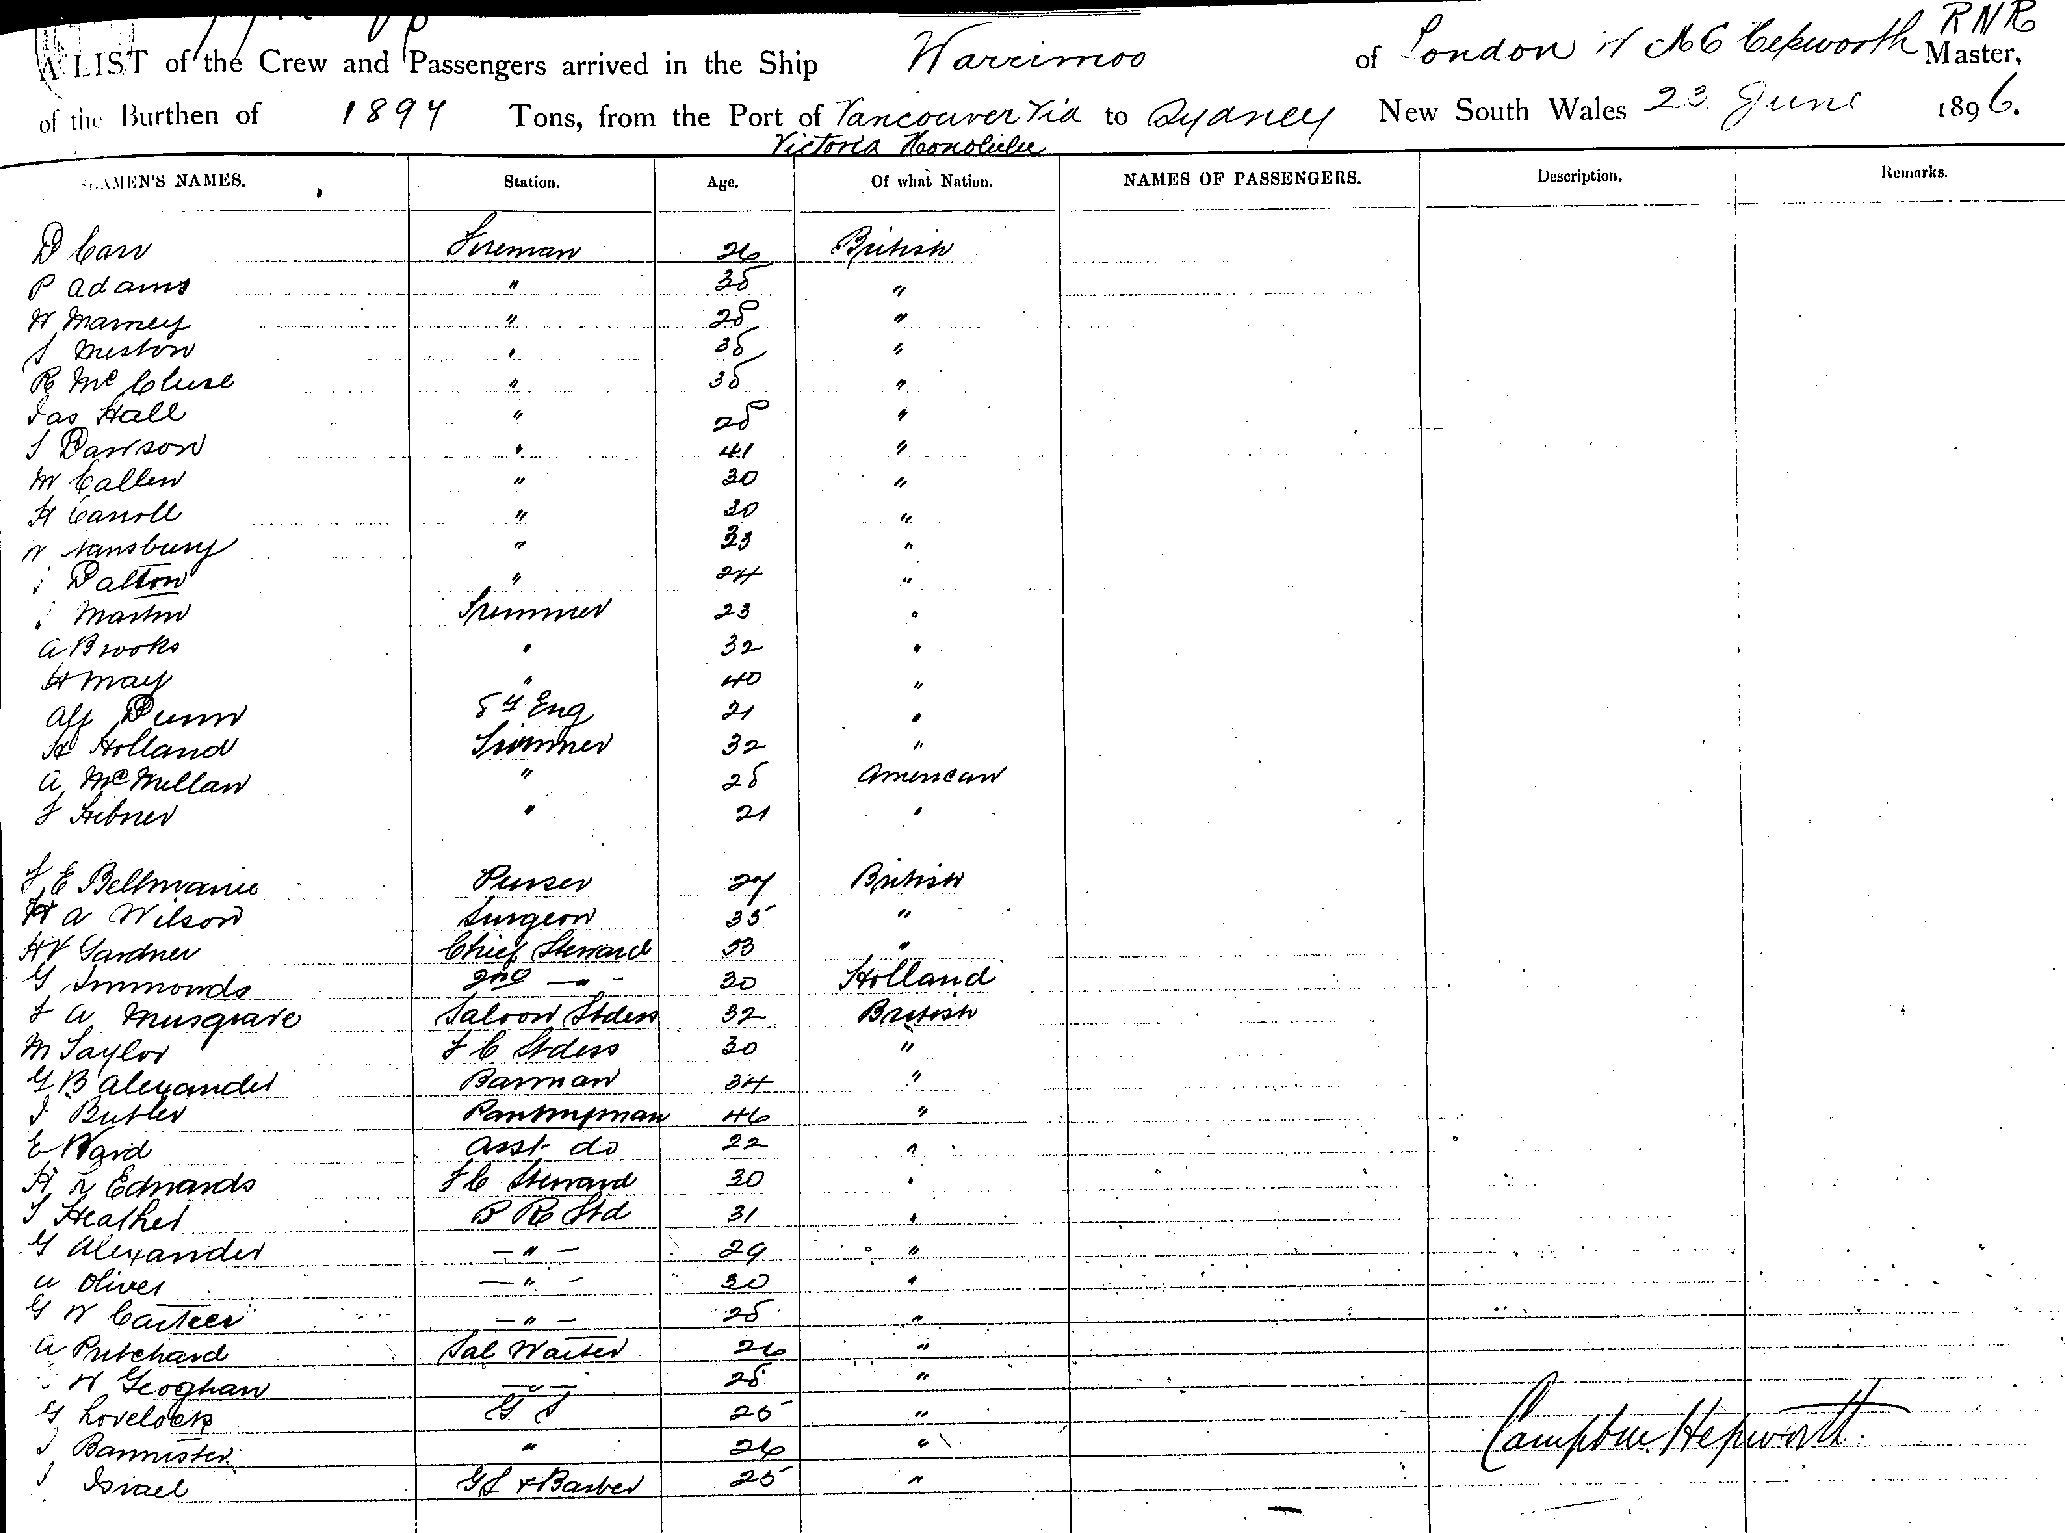 A LIST of the Crew and Passengers arrived in the Ship Warrimoo of London M C Hepworth RNR Master,
of the Burthen of 1897 Tons, from the Port of Vancouver Via to Sydney New South Wales 23 June 1896.
Victoria Honolulu
SEAMEN'S NAMES. Station. Age. Of what Nation. NAMES OF PASSENGERS. Description. Remarks.
D Carr Fireman 26 British
P Adams " 35 "
W Marney " 28 "
J Meston " 35 "
R McClure " 35 "
Jas Hall " 28 "
J Dawson " 41 "
M Callen " 30 "
H Carroll " 30 "
W Hansbury " 23 "
Dalton " 24 "
Martin Trimmer 23 "
A Brooks " 32 "
H May " 40 "
Alf Dunn 5th Eng 21 "
H Holland Trimmer 32 "
A McMillan " 25 American
F Hibner " 21 "
F E Beltmanie Purser 27 British
H A Wilson Surgeon 35 "
H V Gardner Chief Steward 53 "
G Simmonds 2nd -"- 30 Holland
F A Musgrave Saloon Stdess 32 British
M Taylor F C Stdess 30 "
G B Alexander Barman 34 "
J Butler Pantryman 46 "
E Ward Asst do 22 "
H Edwards F C Steward 30 "
J Heather B R Std 31 "
G Alexander -"- 29 "
A Oliver -"- 30 "
G W Carteer -"- 25 "
A Pritchard Sal Waiter 26 "
W Geoghan -"- 25 "
G Lovelock G S 25 "
J Bannister " 26 "
J Israel G S & Barber 25 "
Campbell Hepworth